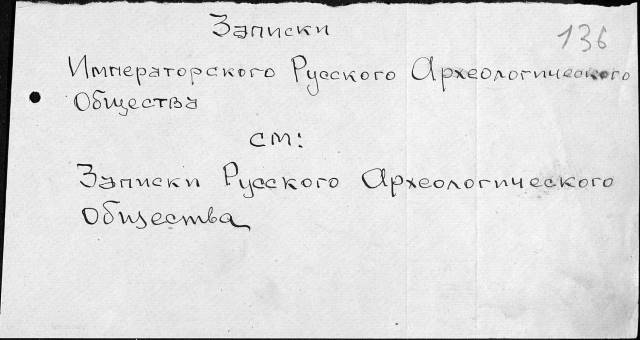 Записки
136
Императорского Русского Археологического
Общества
см:
Записки Русского Археологического
Общества